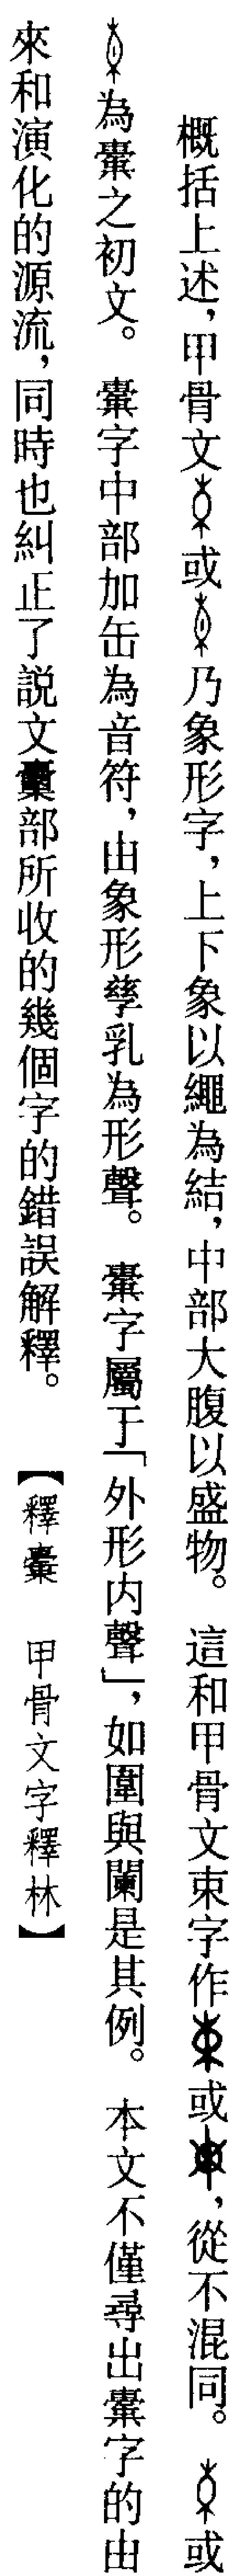 概括上述，甲骨文或乃象形字，上下象以繩為結，中部大腹以盛物。這和甲骨文束字作或，從不混同。或
為㯱之初文。㯱字中部加缶為音符，由象形孳乳為形聲。㯱字屬于「外形内聲」，如圍與闌是其例。本文不僅尋出㯱字的由
來和演化的源流，同時也糾正了説文㯻部所收的幾個字的錯誤解釋。【釋㯱 甲骨文字釋林】